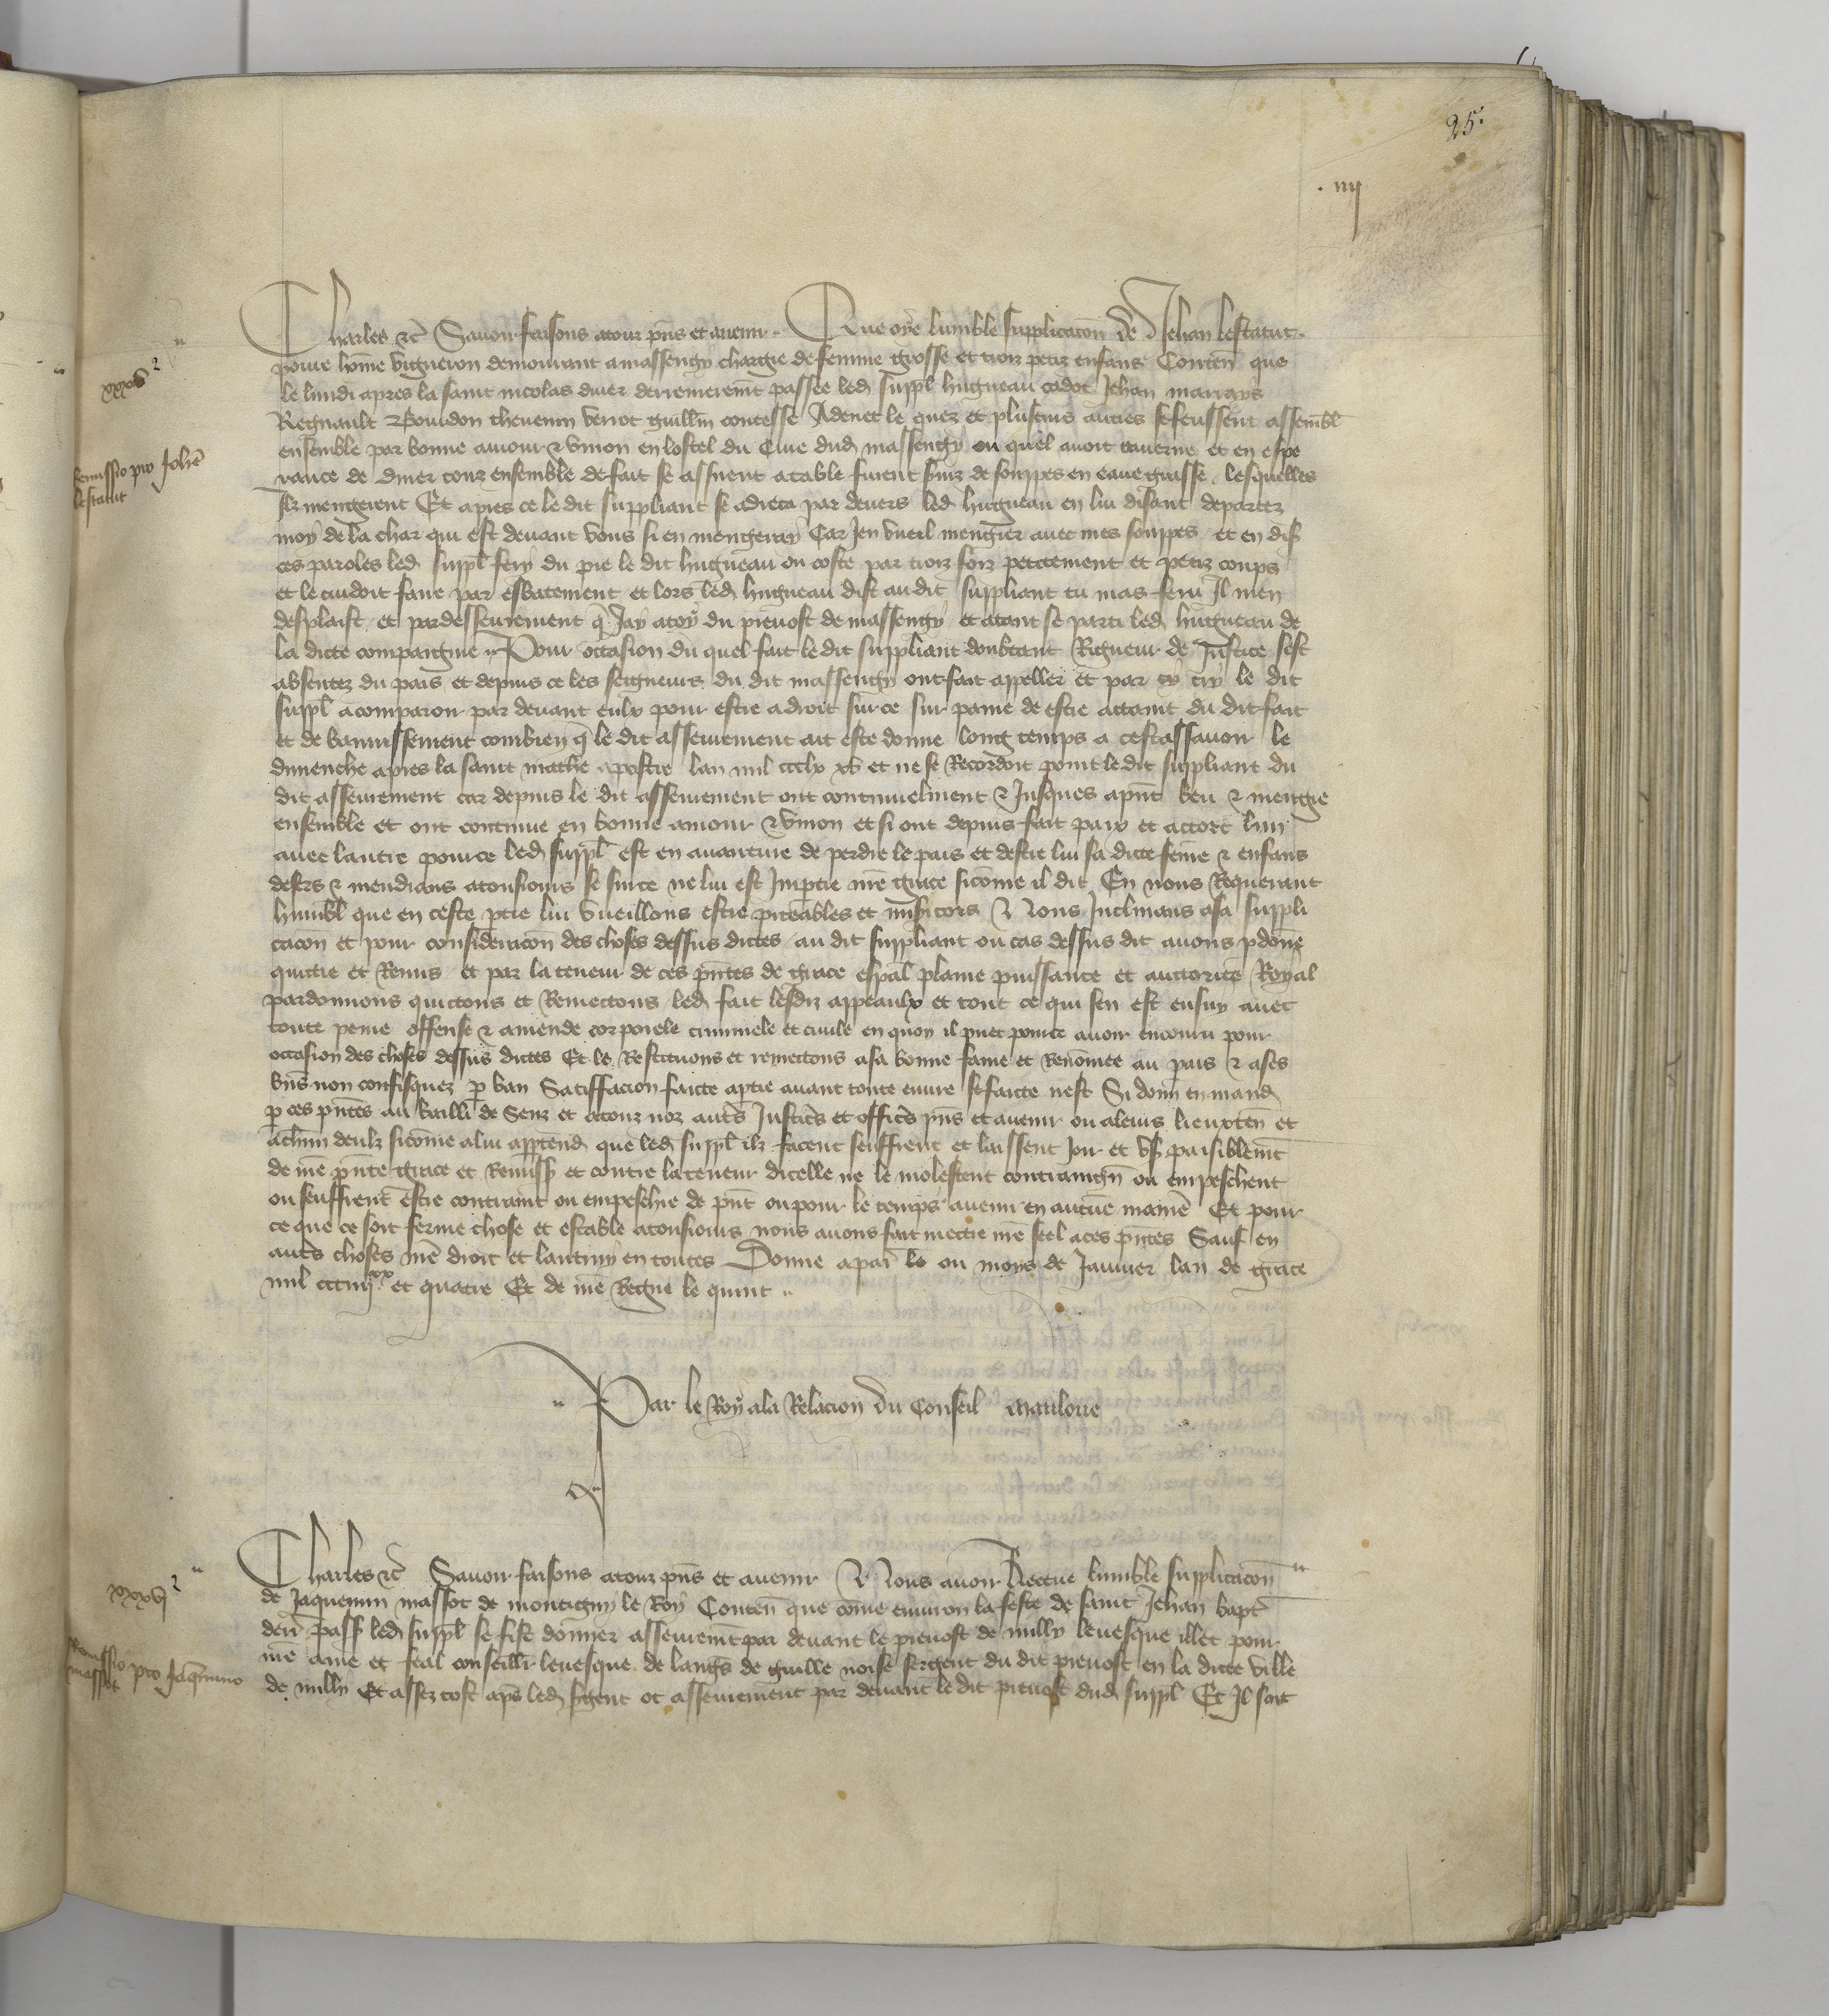 25.
. iiij
Charles &c̃ Savoir faisons a touz pñs et avenir .. Que oye lumble supplicacoñ de Jehan lestatut.
povre hõme vigneron demourant a massengy chargie de femme grosse et troiz petiz enfans Conteñ que
le lundi apres la saint nicolas diver derremeremẽt passee led suppl hugueau cadot Jehan marrays
Regnault Bourdon thevenin veriot guill̃m contesse Adenet le quez et plusieurs autres se feussent assembl
ensemble par bonne amour & union en lostel du Cure dud massengy ou quel avoit taverne et en espe
rance de diner touz ensemble de fait se assirent a table furent serviz de souppes en eaue grasse / lesquelles
Ilz mengerent Et apres ce le dit suppliant se adreca par devers led hugueau en lui disant departez
moy de la char qui est devant vous si en mengeray Car Jen vueil mengier avec mes souppes / et en dis
ces paroles led suppl fery du pie le dit hugueau ou coste par troiz foiz petitement et petiz coups
et le cuidoit faire par esbatement et lors led hugueau dist au dit suppliant tu mas feru Il men
desplaist / et par dessus asseurement q̃ Jay a toy du prevost de massengy et atant se parti led hugueau de
la dicte compaignie .. Pour occasion du quel fait le dit suppliant doubtant Rigueur de Justice sest
absentez du pais et depuis ce les seigneurs du dit massengy ont fait appeller et par cry le dit
suppl a comparoir par devant eulx pour estre a droit sur ce sur paine de estre attaint du dit fait
et de bannissement combien q̃ le dit asseurement ait este donne long temps a cestassavoir le
dimenche apres la saint mathe apostre lan mil ccclx xv et ne se Recordoit point le dit suppliant du
dit asseurement car depuis le dit asseurement ont continuelment & Jusques a pñt beu & mengie
ensemble et ont continue en bonne amour & union et si ont depuis fait paix et accort lun
avec lautre pour ce led suppl est en avanture de perdre le pais et destre lui sa dicte fẽme & enfans
desers & mendians a tousiours se sur ce ne lui est Impartie nr̃e grace sicõme il dit En nous Requerant
humbl que en ceste ptie lui vueillons estre piteables et mis̃icors Et Nous Inclinans a sa suppli
cacoñ et pour consideracoñ des choses dessus dictes / au dit suppliant ou cas dessus dit avons pdoñe
quictie et Remis / et par la teneur de ces pñtes de grace esp̃al plaine puissance et auctorite Royal
pardonnons quictons et Remectons led fait lesdiz appeaulx et tout ce qui sen est ensuy avec
toute peine offense & amende corporele criminele et civile en quoy il puet pour ce avoir encouru pour
occasion des choses dessus dictes Et le Restituons et remectons a sa bonne fame et Renõmee au pais & a ses
biñs non confisquez p ban Satiffacion faicte a ptie avant toute euvre se faicte nest Si donñ en mand
p ces pñtes au bailli de Senz et a touz noz autr̃s Justic̃s et offic̃s pñs et avenir ou a leurs lieuxteñ et
a chũn deulz sicõme a lui apptend que led suppl ilz facent seuffrent et laissent Joir et us̃ paisiblem̃t
de nr̃e pñte grace et Remiss̃ et contre la teneur dicelle ne le molestent contraingñ ou empeschent
ou seuffrent estre contraint ou empeschie de pñt ou pour le temps avenir en aucũe maniẽ Et pour
ce que ce soit ferme chose et estable a tousiours nous avons fait mectre nr̃e seel a ces pñtes Sauf en
autr̃s choses nr̃e droit et lautruy en toutes Donne a paris ou moys de Janvier lan de grace
mil ccc iiij xx et quatre Et de nr̃e Regne le quint ..
.. Par le Roy a la Relacion du Conseil maulove
xxxv
Remissio pro Johẽ
lestatut
Charles &c̃ Savoir faisons a touz pñs et avenir Nous avoir Receue lumble supplicacoñ
de Jaquemin massot de montigny le Roy Conteñ que cõme environ la feste de saint Jehan bapt̃
deñ pass̃ led suppl se fist donner asseuremẽt par devant le prevost de nully levesque illec pour
nr̃e ame et feal conseill̃r levesque de langr̃s de guille noise sergent du dit prevost en la dicte ville
de nully Et assez tost ap̃s led sergent ot asseurement par devant le dit prevost dud suppl Et Il soit
xxxvj
Remissio pro Jaq̃mino
massot